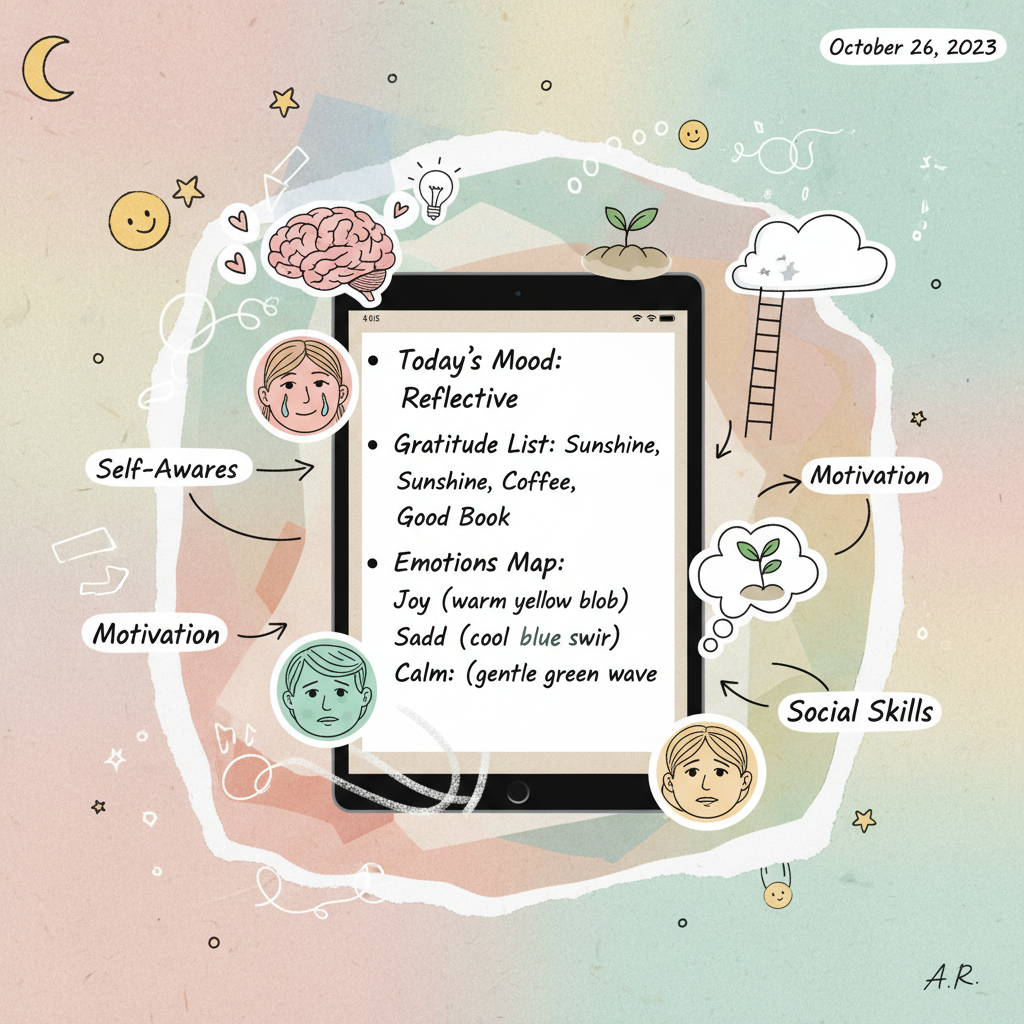 October 26, 2023
• Today's Mood:
Reflective
• Gratitude List: Sunshine,
Sunshine, Coffee,
Good Book
• Emotions Map:
Joy (warm yellow blob)
Sadd (cool blue swir)
Calm: (gentle green wave
Self-Awares
Motivation
Motivation
Social Skills
A.R.